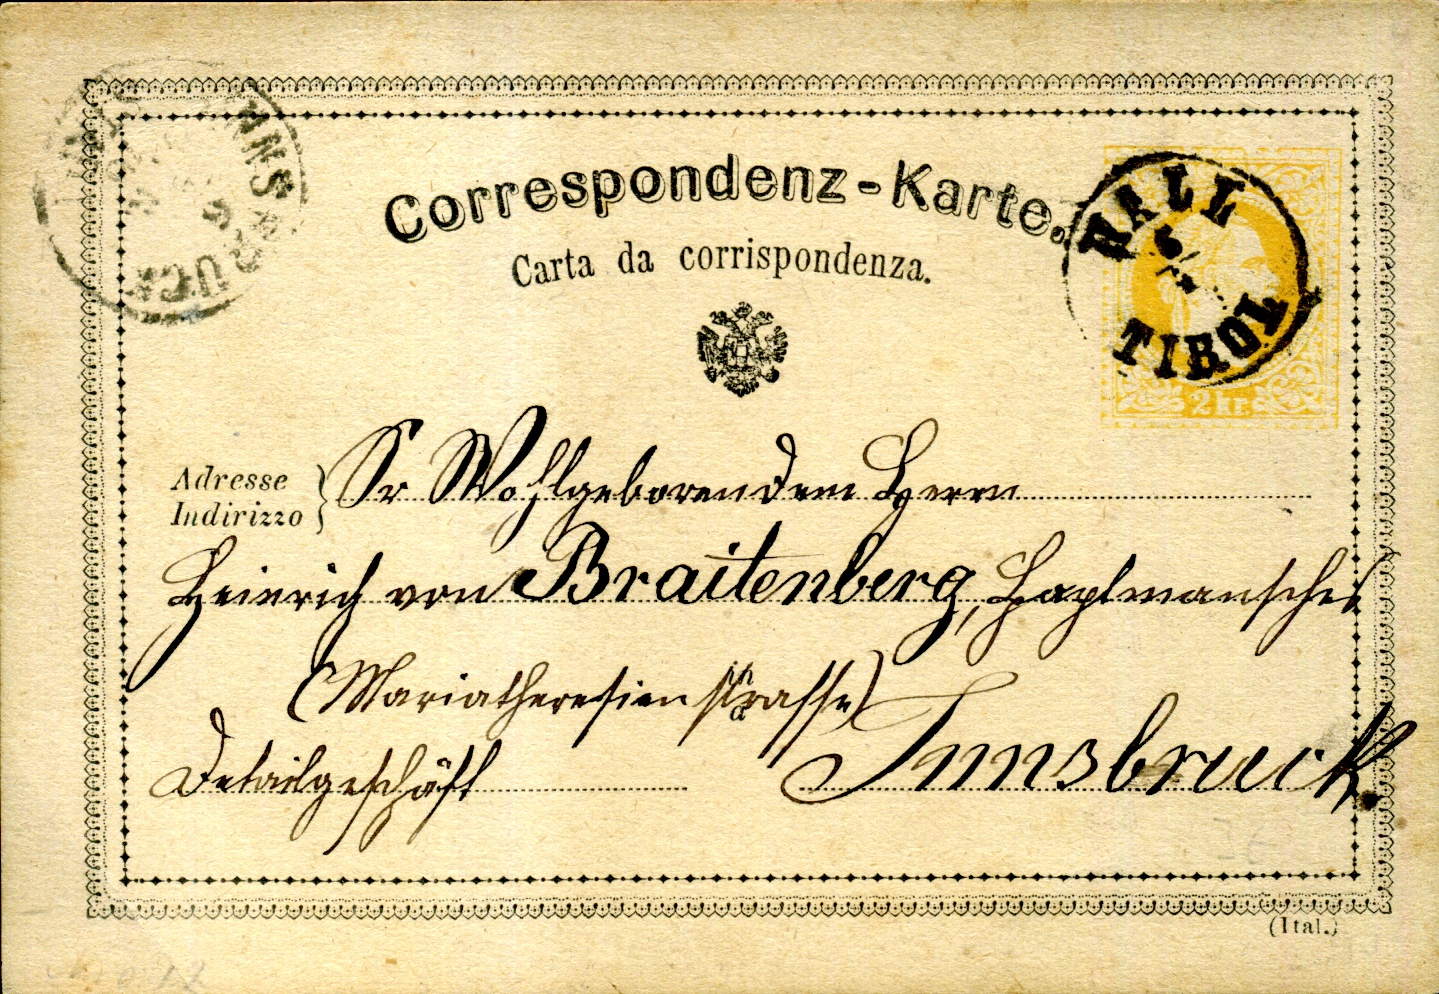 Correspondenz-Karte.
Carta da corrispondenza.
HALL
TIROL
2 Kr.
Adresse
Indirizzo
Sr Wohlgeboren dem Herrn
Heinrich von Braitenberg,
(Mariatheresien strasse)
Detailgeschäft
Innsbruck
(Ital.)